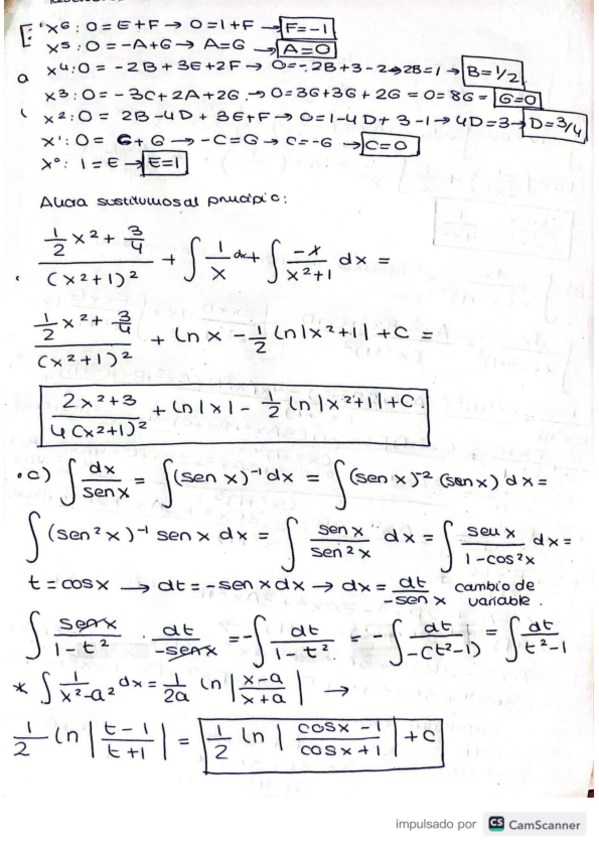 x⁶: 0 = E+F → 0=1+F → F=-1
x⁵: 0 = -A+G → A=G → A=0
x⁴: 0 = -2B+3E+2F → 0=-2B+3-2→2B=1 → B=1/2
x³: 0 = -3C+2A+2G → 0=3G+3G+2G = 0=8G = G=0
x²: 0 = 2B-4D+3E+F → 0=1-4D+3-1→4D=3→D=3/4
x¹: 0 = C+G → -C=G → C=-G → C=0
x⁰: 1=E → E=1
Ahora sustituimos al principio:
(1/2 x² + 3/4)/(x²+1)² + ∫ 1/x dx + ∫ -x/(x²+1) dx =
(1/2 x² + 3/4)/(x²+1)² + ln x - 1/2 ln|x²+1| + C =
(2x²+3)/(4(x²+1)²) + ln|x| - 1/2 ln|x²+1| + C.
·c) ∫ dx/sen x = ∫(sen x)⁻¹ dx = ∫(sen x)⁻² (sen x) dx =
∫(sen² x)⁻¹ sen x dx = ∫ sen x/sen² x dx = ∫ sen x/(1-cos²x) dx =
t = cos x → dt = -sen x dx → dx = dt/-sen x cambio de variable.
∫ sen x/(1-t²) · dt/-sen x = -∫ dt/(1-t²) = -∫ dt/-(t²-1) = ∫ dt/(t²-1)
* ∫ 1/(x²-a²) dx = 1/2a ln|(x-a)/(x+a)| →
1/2 ln|(t-1)/(t+1)| = 1/2 ln|(cos x - 1)/(cos x + 1)| + C
impulsado por CS CamScanner